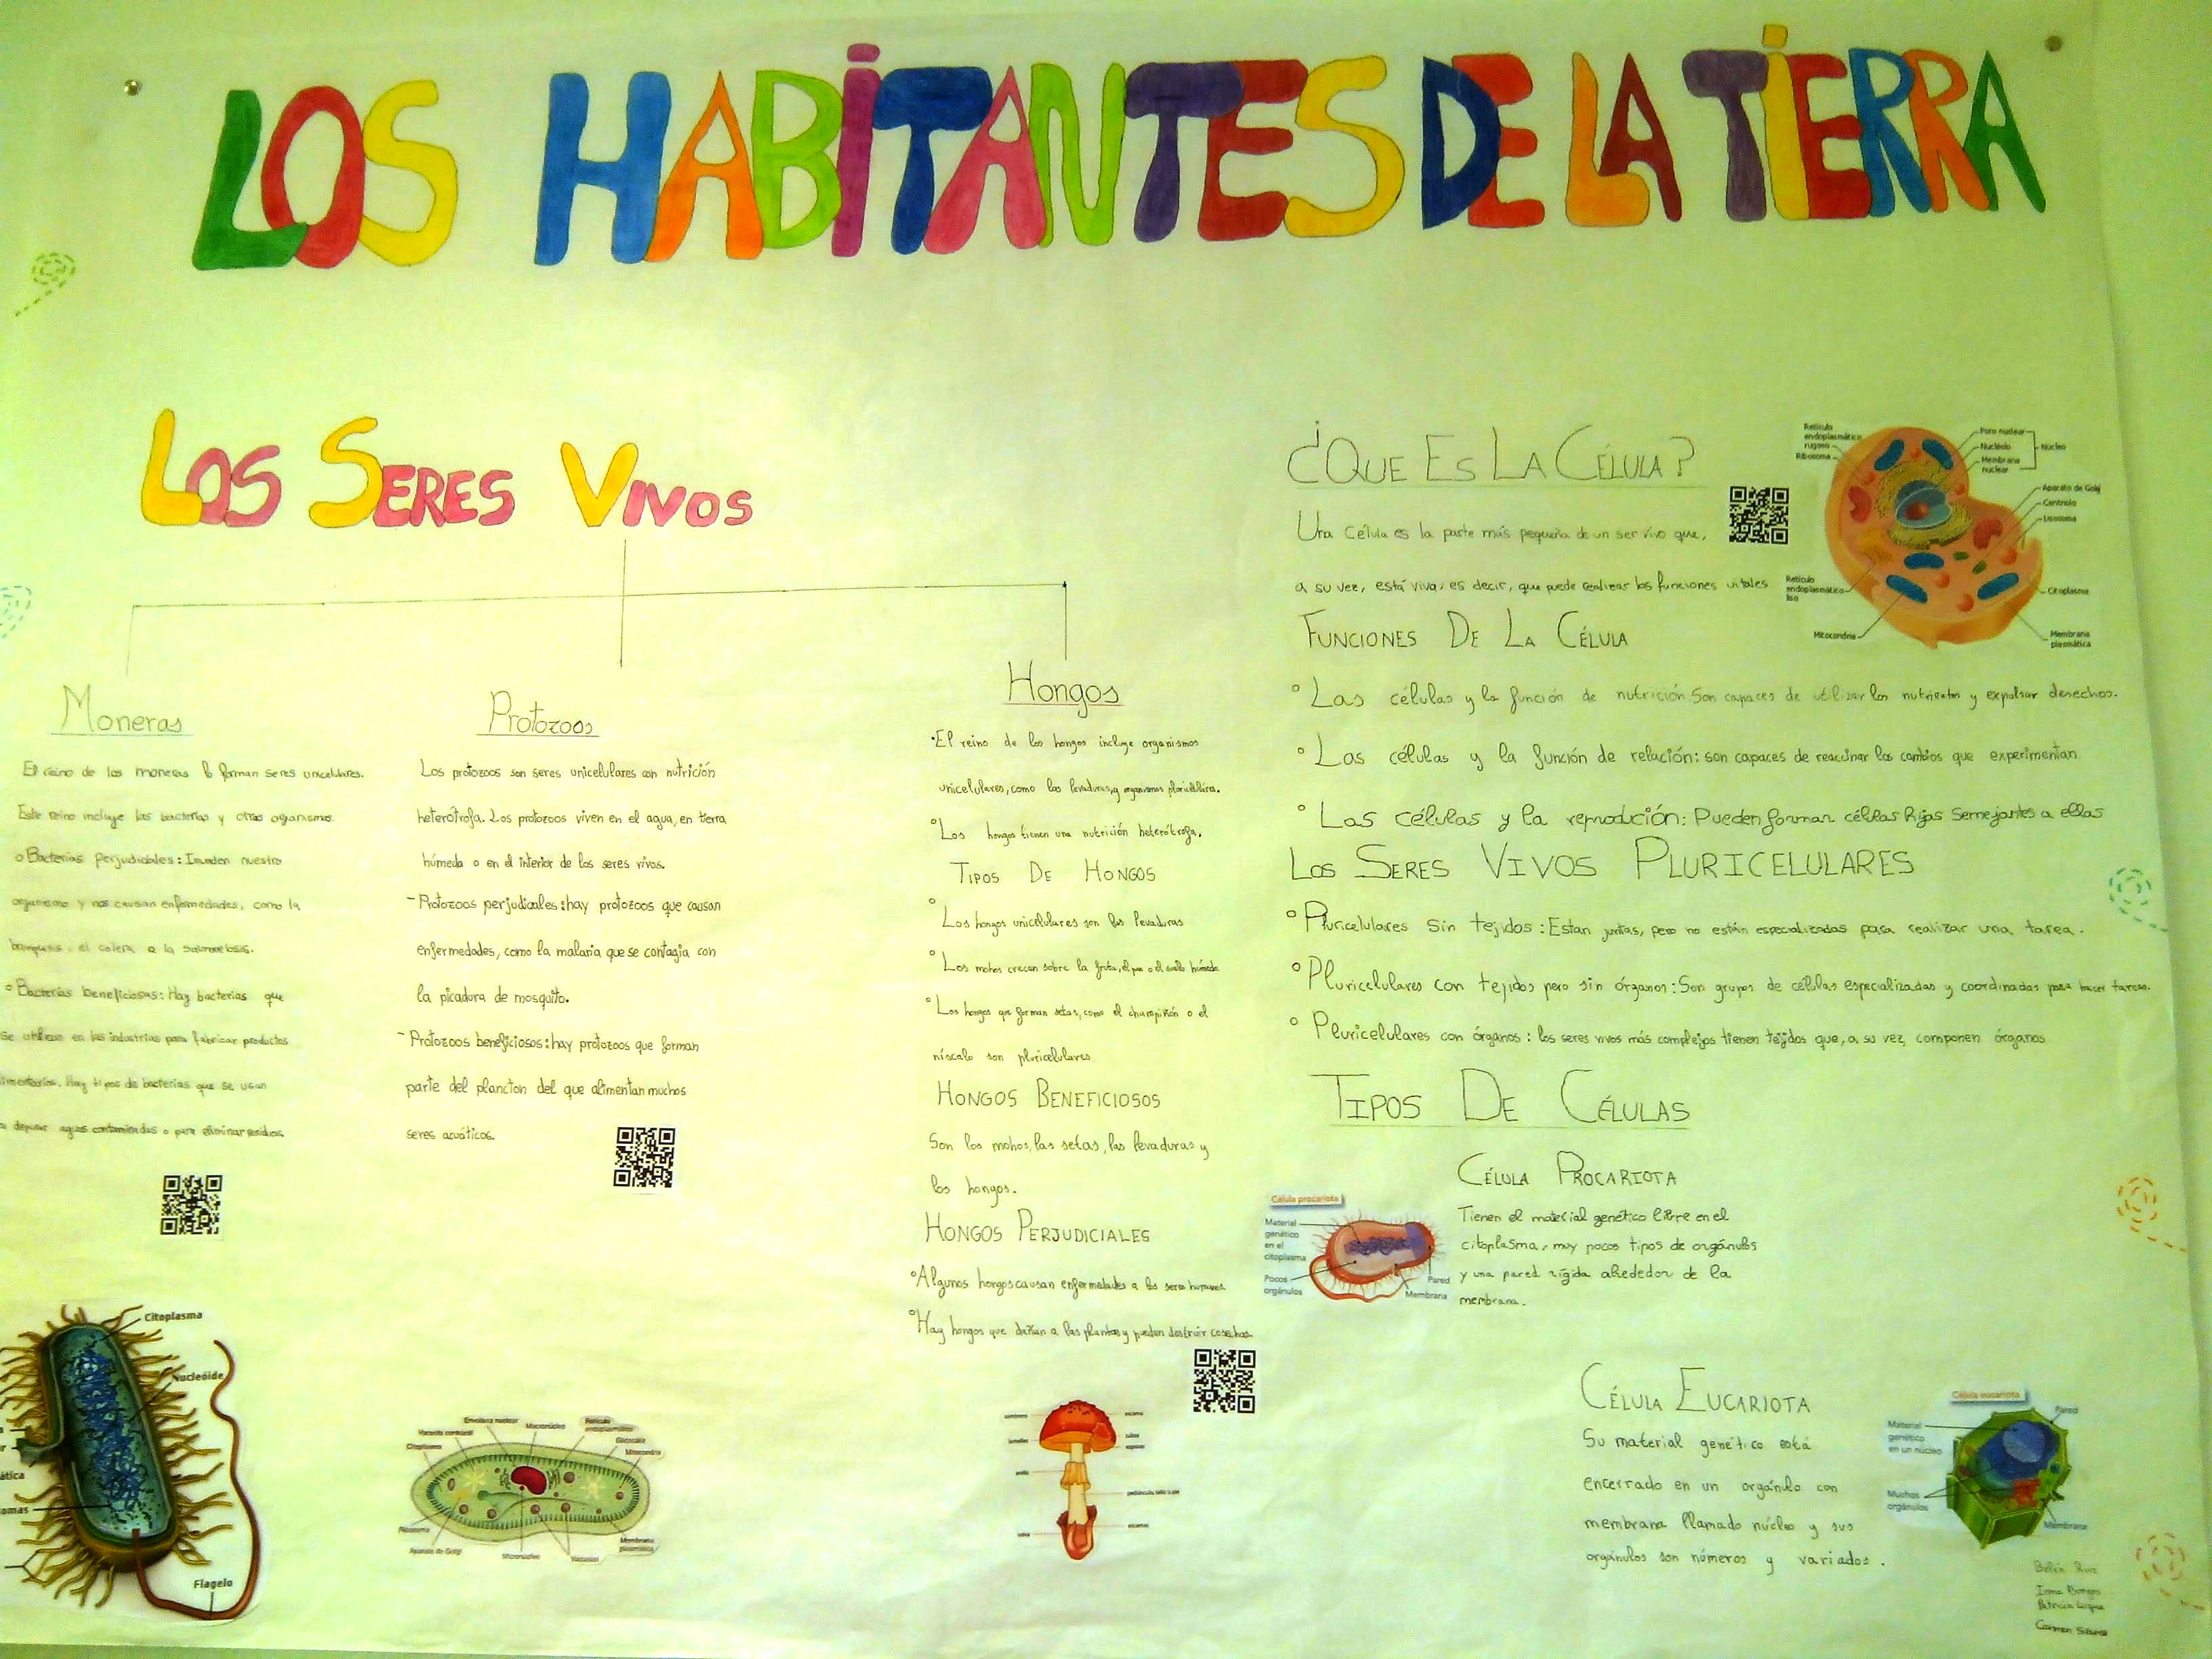 LOS HABITANTES DE LA TIERRA
LOS SERES VIVOS
Moneras
El reino de las moneras lo forman seres unicelulares.
Este reino incluye las bacterias y otros organismos.
o Bacterias perjudiciales: Invaden nuestro
organismo y nos causan enfermedades, como la
el colera o la salmonelosis.
° Bacterias beneficiosas: Hay bacterias que
se utilizan en las industrias para fabricar productos
Hay tipos de bacterias que se usan
depurar aguas contaminadas o para eliminar residuos.
Citoplasma
Nucleóide
Flagelo
Protozoos
Los protozoos son seres unicelulares con nutrición
heterótrofa. Los protozoos viven en el agua, en tierra
húmeda o en el interior de los seres vivos.
- Protozoos perjudiciales: hay protozoos que causan
enfermedades, como la malaria que se contagia con
la picadura de mosquito.
- Protozoos beneficiosos: hay protozoos que forman
parte del plancton del que alimentan muchos
seres acuáticos.
Envoltura nuclear
Macronúcleo
Retículo endoplasmático
Vacuola contráctil
Glucocálix
Citoplasma
Mitocondria
Ribosoma
Aparato de Golgi
Micronúcleo
Vacuolas
Membrana plasmática
Hongos
·El reino de los hongos incluye organismos
unicelulares, como las levaduras, y organismos pluricelulares.
°Los hongos tienen una nutrición heterótrofa.
TIPOS DE HONGOS
°Los hongos unicelulares son las levaduras
°Los mohos crecen sobre la fruta, el pan o el suelo húmedo
°Los hongos que forman setas, como el champiñón o el
níscalo son pluricelulares
HONGOS BENEFICIOSOS
Son los mohos, las setas, las levaduras y
los hongos.
HONGOS PERJUDICIALES
°Algunos hongos causan enfermedades a los seres humanos.
°Hay hongos que dañan a las plantas y pueden destruir cosechas.
¿QUE ES LA CÉLULA?
Una célula es la parte más pequeña de un ser vivo que,
a su vez, está viva; es decir, que puede realizar las funciones vitales
Retículo endoplasmático rugoso
Ribosoma
Poro nuclear
Nucléolo
Membrana nuclear
Núcleo
Aparato de Golgi
Centriolo
Lisosoma
Retículo endoplasmático liso
Citoplasma
Mitocondria
Membrana plasmática
FUNCIONES DE LA CÉLULA
°Las células y la función de nutrición. Son capaces de utilizar los nutrientes y expulsar desechos.
°Las células y la función de relación: son capaces de reaccinar los cambios que experimentan
°Las células y la reproducción: Pueden formar células hijas semejantes a ellas
LOS SERES VIVOS PLURICELULARES
°Pluricelulares sin tejidos: Estan juntas, pero no están especializadas para realizar una tarea.
°Pluricelulares con tejidos pero sin órganos: Son grupos de células especializadas y coordinadas para hacer tareas.
°Pluricelulares con órganos: los seres vivos más complejos tienen tejidos que, a su vez, componen órganos
TIPOS DE CÉLULAS
CÉLULA PROCARIOTA
Tienen el material genético libre en el
citoplasma, muy pocos tipos de orgánulos
y una pared rígida alrededor de la
membrana.
Célula procariota
Material genético en el citoplasma
Pocos orgánulos
Pared
Membrana
CÉLULA EUCARIOTA
Su material genético está
encerrado en un orgánulo con
membrana llamado núcleo y sus
orgánulos son números y variados.
Célula eucariota
Material genético en un núcleo
Pared
Muchos orgánulos
Membrana
Belén Ruiz